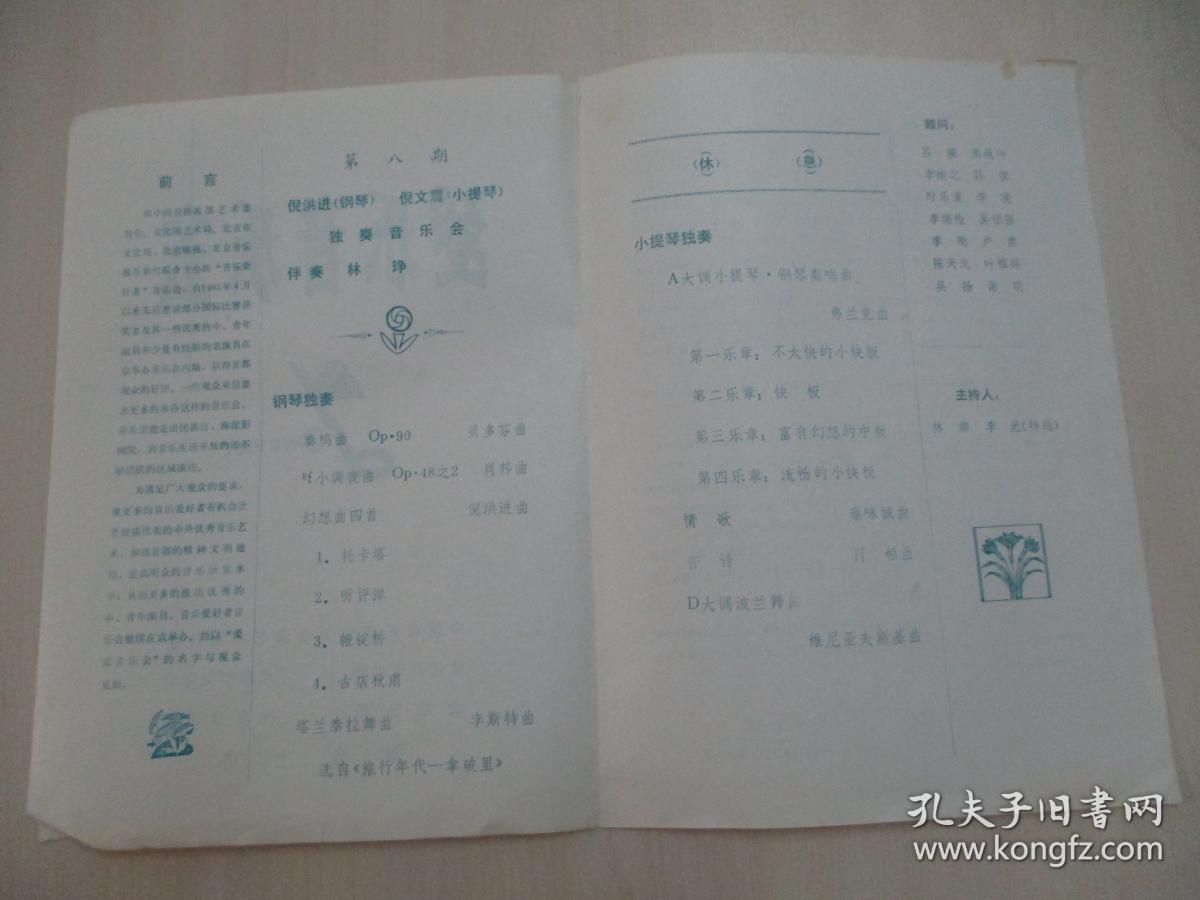 前言
由中国音协表演艺术委
员会、文化部艺术局、北京市
文化局、北京晚报、北京音乐
报等单位联合主办的“音乐爱
好者”音乐会，自1983年4月
以来先后邀请部分国际比赛获
奖者及其一些优秀的中、青年
演员和少量有经验的老演员在
京举办音乐会六期，获得首都
观众的好评。一些观众来信要
求更多的举办这样的音乐会，
并希望能走出民族宫、海淀影
剧院，到音乐生活开展的还不
够活跃的区域演出。
为满足广大观众的要求，
使更多的音乐爱好者有机会欣
赏健康优美的中外优秀音乐艺
术，加强首都的精神文明建
设，提高听众的音乐欣赏水
平；从而更多的推出优秀的
中、青年演员，音乐爱好者音
乐会继续在京举办，她以“爱
乐音乐会”的名字与观众
见面。
第八期
倪洪进(钢琴) 倪文震(小提琴)
独奏音乐会
伴奏 林 琤
钢琴独奏
奏鸣曲 Op·90 贝多芬曲
小调夜曲 Op·48之2 肖邦曲
幻想曲四首 倪洪进曲
1．托卡塔
2．听评弹
3．银锭桥
4．古店秋肃
塔兰泰拉舞曲 李斯特曲
选自《旅行年代—拿破里》
(休) (息)
小提琴独奏
A大调小提琴·钢琴奏鸣曲
弗兰克曲
第一乐章：不太快的小快板
第二乐章：快 板
第三乐章：富有幻想的中板
第四乐章：流畅的小快板
情 歌 秦咏诚曲
音 诗 肖 松曲
D大调波兰舞曲
维尼亚夫斯基曲
顾问：
吕 骥 周巍峙
李焕之 孙 慎
时乐濛 李 凌
李德伦 吴祖强
李 刚 卢 肃
陈天戈 叶
吴 扬 谢 明
主持人：
林 娜 李 光(特邀)
孔夫子旧书网
www.kongfz.com